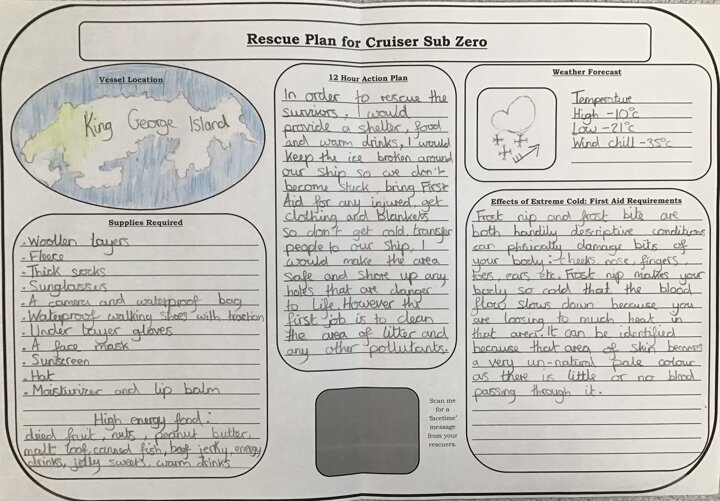 Rescue Plan for Cruiser Sub Zero
Vessel Location
King George Island
Supplies Required
. Woollen layers
. Fleece
. Thick socks
. Sunglasses
. A camera and waterproof bag
. Waterproof walking shoes with traction
. Under layer gloves
. A face mask
. Sunscreen
. Hat
. Moisturizer and lip balm
High energy food :
dried fruit, nuts, peanut butter,
malt loaf, canned fish, beef jerky, energy
drinks, jelly sweets, warm drinks
12 Hour Action Plan
In order to rescue the
survivors, I would
provide a shelter, food
and warm drinks, I would
keep the ice broken around
our ship so we don't
become stuck, bring First
Aid for any injured, get
clothing and blankets
so don't get cold, transfer
people to our ship, I
would make the area
safe and shore up any
holes that are danger
to life. However the
first job is to clean
the area of litter and
any other pollutants.
Scan me
for a
'facetime'
message
from your
rescuers.
Weather Forecast
Temperature
High -10°c
Low -21°c
Wind chill -35°c
Effects of Extreme Cold: First Aid Requirements
Frost nip and frost bite are
both handily descriptive conditions
can phisically damage bits of
your body :- cheeks, nose, fingers,
toes, ears etc. Frost nip makes your
body so cold that the blood
flow slows down because you
are loosing to much heat in
that area. It can be identified
because that area of skin becomes
a very un-natural pale colour
as there is little or no blood
passing through it.